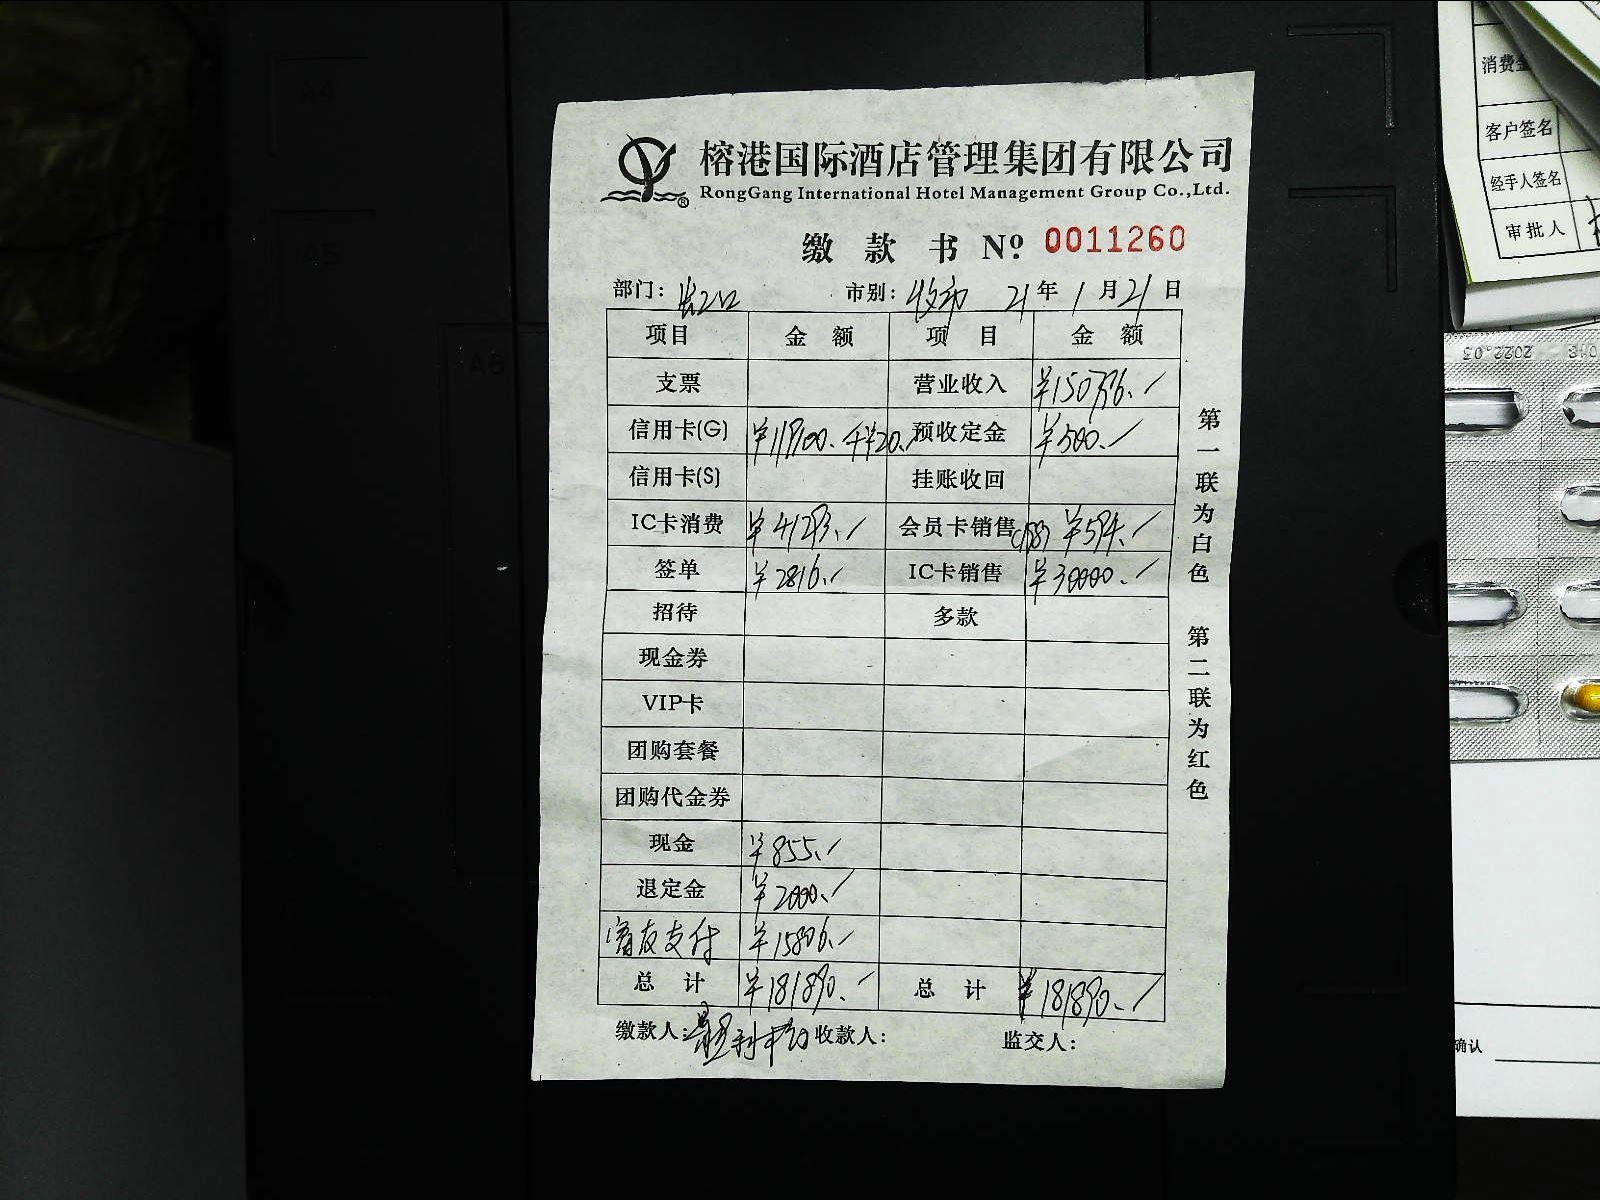 榕港国际酒店管理集团有限公司
RongGang International Hotel Management Group Co.,Ltd.
缴款书 Nº: 0011260
部门: 市别: 21年1月21日
项目 金额 项目 金额
支票 营业收入 ¥150796.
信用卡(G) ¥119100. +¥20. 预收定金 ¥500.
信用卡(S) 挂账收回
IC卡消费 ¥41293. 会员卡销售 ¥594.
签单 ¥2816. IC卡销售 ¥30000.
招待 多款
现金券
VIP卡
团购套餐
团购代金券
现金 ¥855.
退定金 ¥2000.
支付 ¥15806.
总计 ¥181890. 总计 ¥181890.
缴款人: 收款人: 监交人:
第一联为白色 第二联为红色
消费金
客户签名
经手人签名
审批人
确认
A4
A5
A6